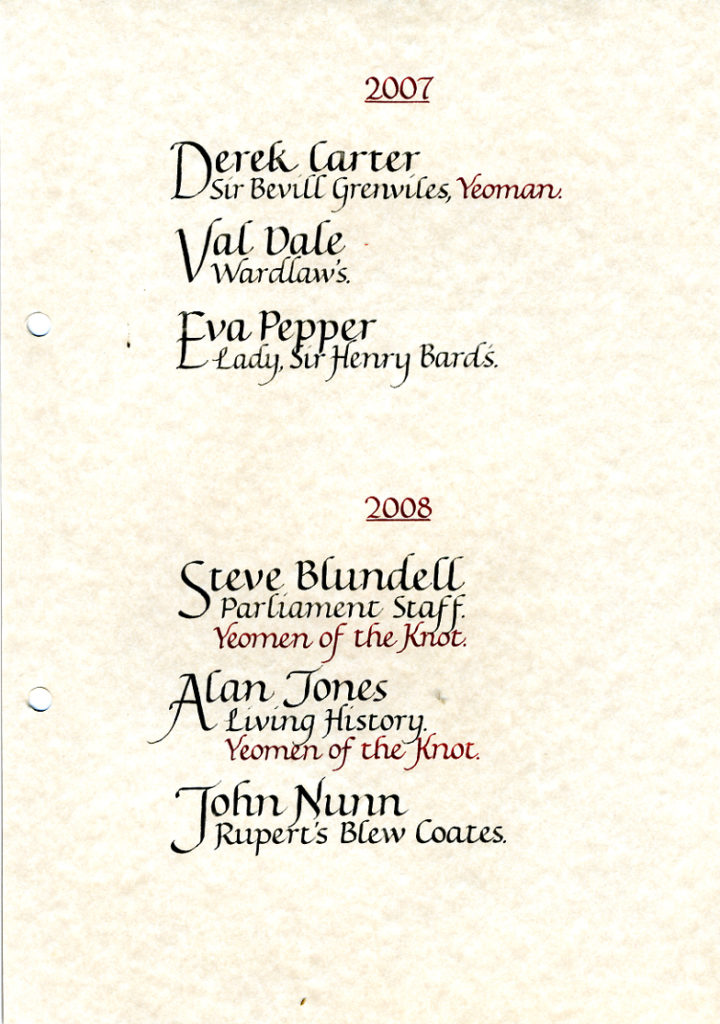 2007
Derek Carter
Sir Bevill Grenviles, Yeoman.
Val Dale
Wardlaw's.
Eva Pepper
Lady, Sir Henry Bard's.
2008
Steve Blundell
Parliament Staff.
Yeomen of the Knot.
Alan Jones
Living History.
Yeomen of the Knot.
John Nunn
Rupert's Blew Coates.